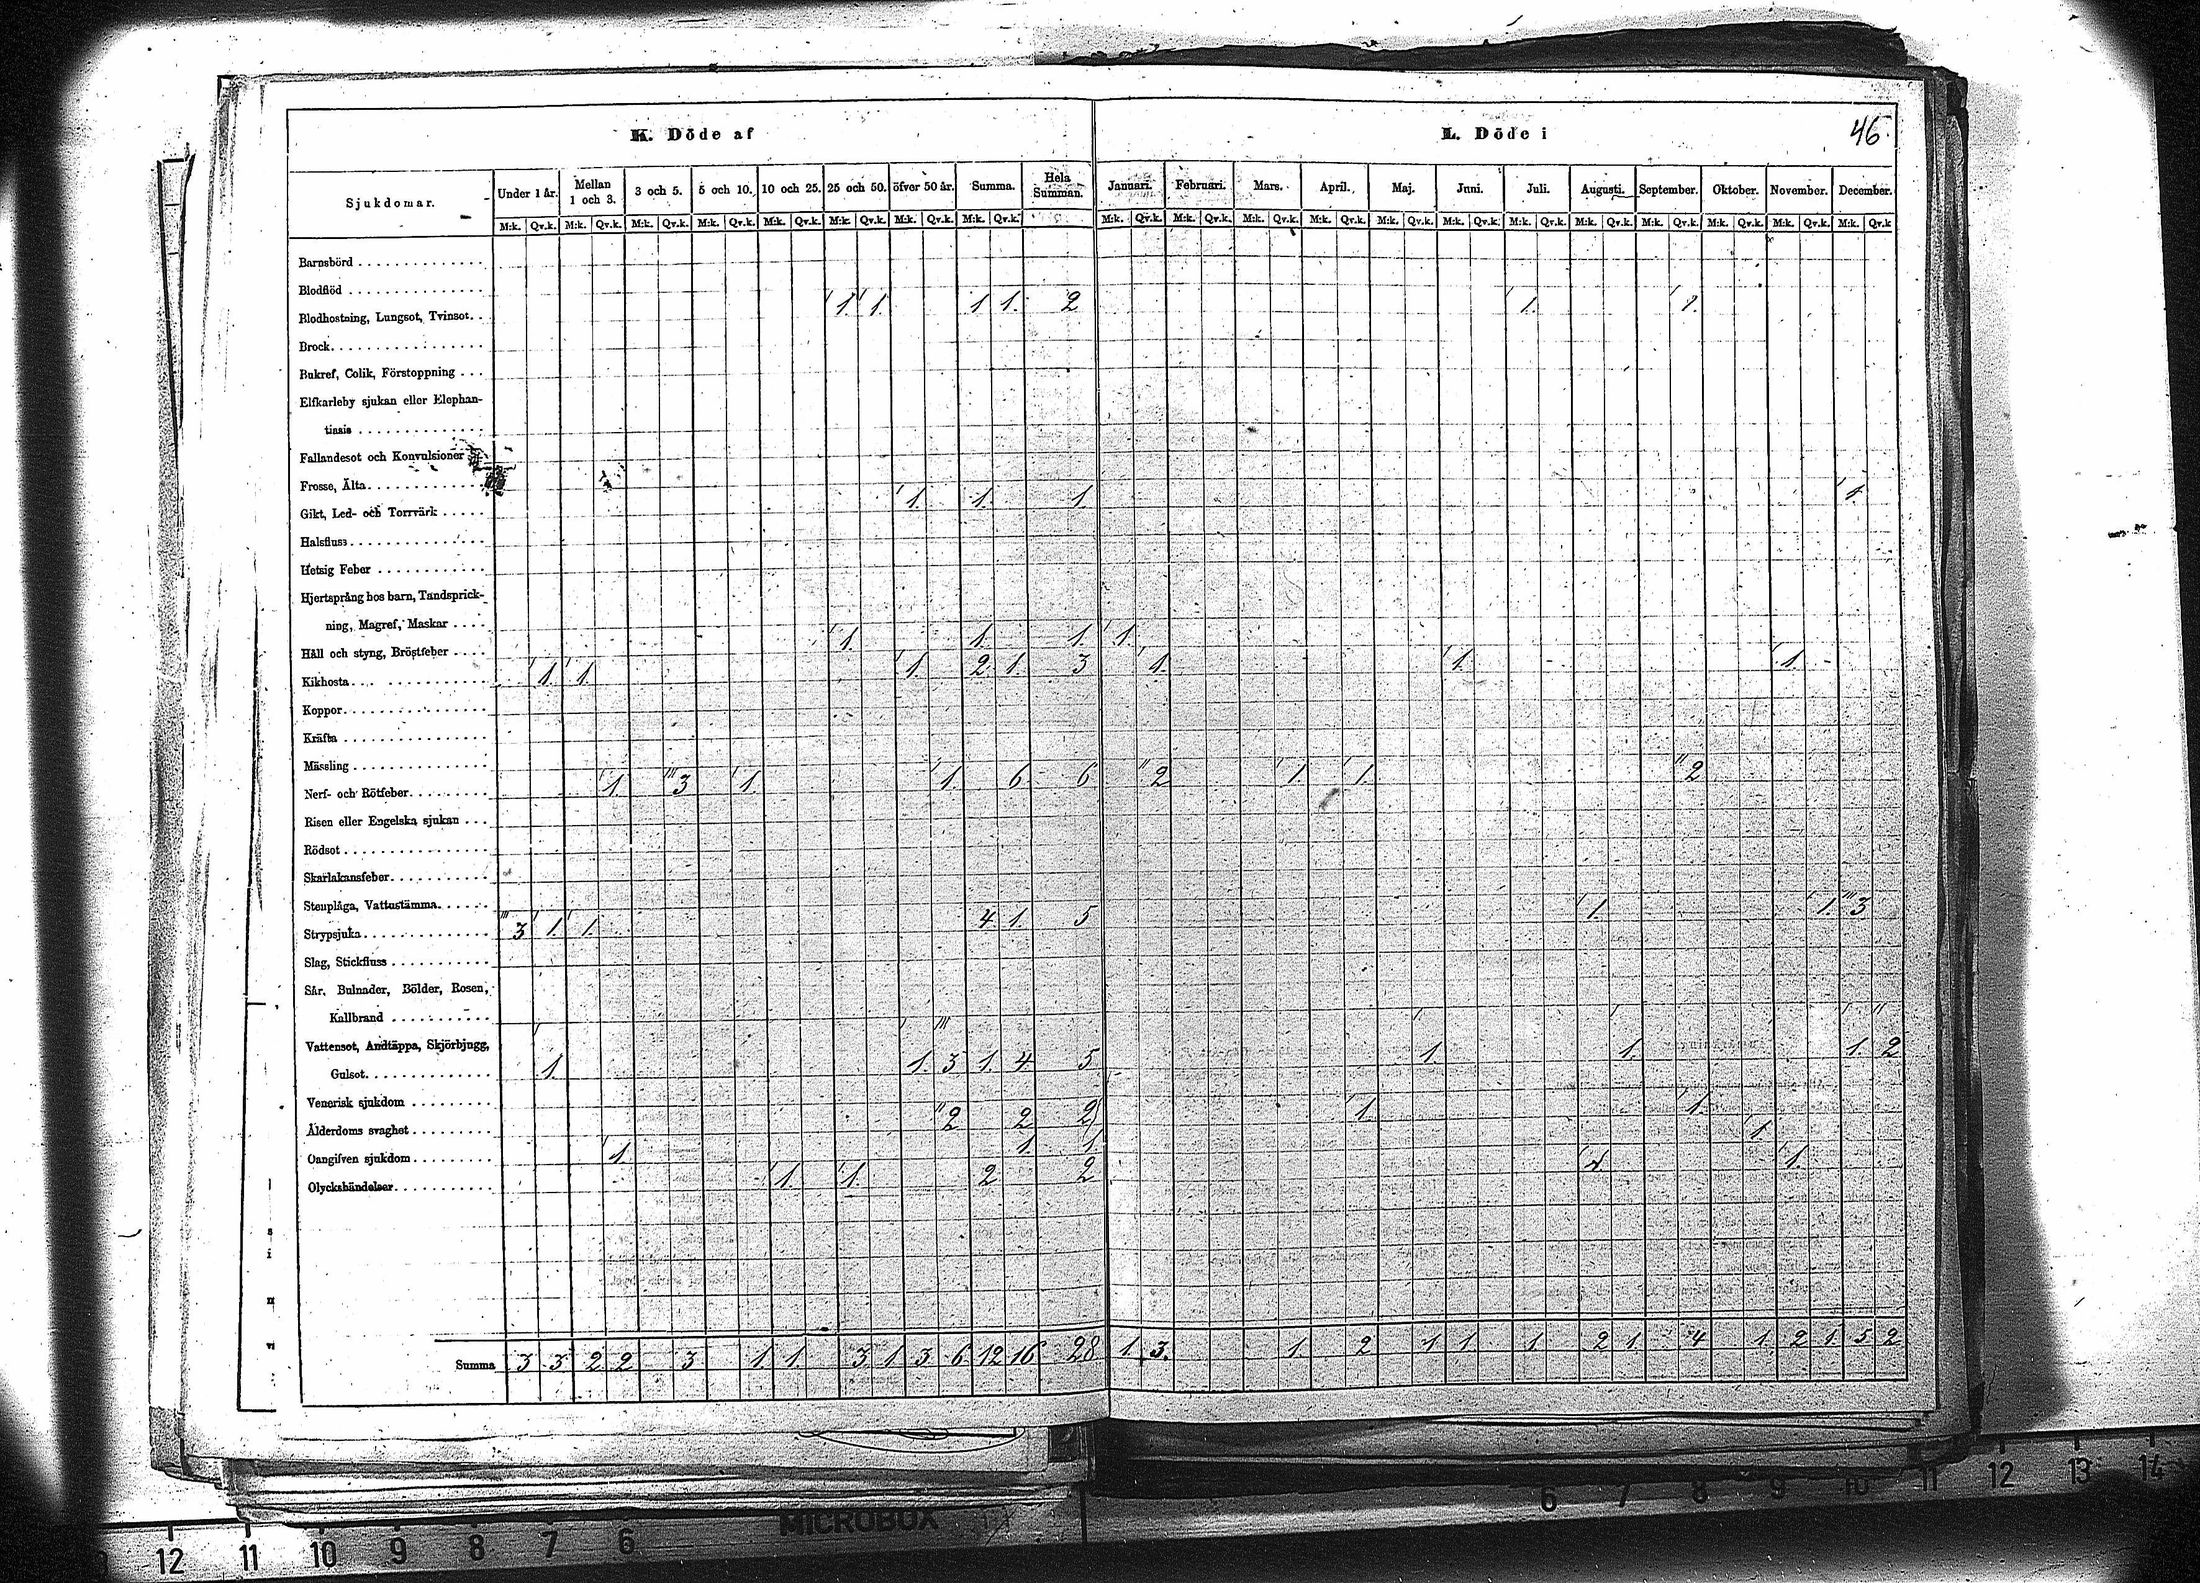 K. Döde af L. Döde i 46.
Sjukdomar. Under 1 år. Mellan 1 och 3. 3 och 5. 5 och 10. 10 och 25. 25 och 50. öfver 50 år. Summa. Hela Summan. Januari. Februari. Mars. April. Maj. Juni. Juli. Augusti. September. Oktober. November. December.
M:k. Qv.k. M:k. Qv.k. M:k. Qv.k. M:k. Qv.k. M:k. Qv.k. M:k. Qv.k. M:k. Qv.k. M:k. Qv.k. M:k. Qv.k. M:k. Qv.k. M:k. Qv.k. M:k. Qv.k. M:k. Qv.k. M:k. Qv.k. M:k. Qv.k. M:k. Qv.k. M:k. Qv.k. M:k. Qv.k. M:k. Qv.k. M:k. Qv.k
Barnsbörd
Blodflöd
Blodhostning, Lungsot, Tvinsot. 1 1. 1 1. 2 1. 1.
Brock
Bukref, Colik, Förstoppning
Elfkarleby sjukan eller Elephan-
tiasis
Fallandesot och Konvulsioner
Frosse, Älta
Gikt, Led- och Torrvärk 1. 1. 1. 1.
Halsfluss
Hetsig Feber
Hjertsprång hos barn, Tandsprick-
ning, Magref, Maskar
Håll och styng, Bröstfeber 1. 1. 1. 1.
Kikhosta 1. 1. 1. 2 1. 3 1. 1. 1.
Koppor
Kräfta
Mässling
Nerf- och Rötfeber 1. 3 1. 1. 6 6 2 1. 1. 2
Risen eller Engelska sjukan
Rödsot
Skarlakansfeber
Stenplåga, Vattustämma
Strypsjuka 3 1. 1. 4 1. 5 1. 1. 3
Slag, Stickfluss
Sår, Bulnader, Bölder, Rosen,
Kallbrand
Vattensot, Andtäppa, Skjörbjugg,
Gulsot 1. 1. 3 1. 4 5 1. 1. 1. 2
Venerisk sjukdom
Ålderdoms svaghet 2 2 2 1. 1.
Oangifven sjukdom 1. 1. 1 1.
Olyckshändelser 1. 1. 2 2 1. 1.
Summa 3 3 2 2 3 1. 1. 3 1. 3 6 12 16 28 1. 3. 1. 2 1 1. 1. 2 1. 4 1. 2 1. 5 2
MICROBOX
12 11 10 9 8 7 6 6 7 8 9 10 11 12 13 14